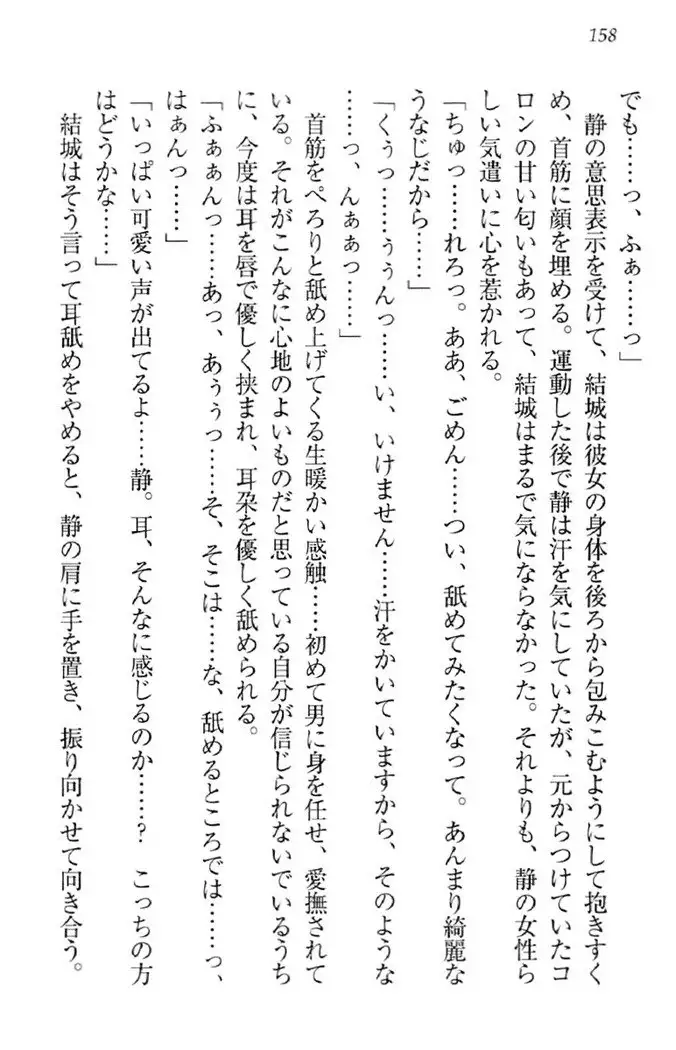 158
でも……っ、ふぁ……っ」
　静の意思表示を受けて、結城は彼女の身体を後ろから包みこむようにして抱きすく
め、首筋に顔を埋める。運動した後で静は汗を気にしていたが、元からつけていたコ
ロンの甘い匂いもあって、結城はまるで気にならなかった。それよりも、静の女性ら
しい気遣いに心を惹かれる。
「ちゅっ……れろっ。ああ、ごめん……つい、舐めてみたくなって。あんまり綺麗な
うなじだから……」
「くぅっ……ぅぅんっ……い、いけません……汗をかいていますから、そのような
……っ、んぁぁっ……」
　首筋をぺろりと舐め上げてくる生暖かい感触……初めて男に身を任せ、愛撫されて
いる。それがこんなに心地のよいものだと思っている自分が信じられないでいるうち
に、今度は耳を唇で優しく挟まれ、耳朶を優しく舐められる。
「ふぁぁんっ……あっ、あぅぅっ……そ、そこは……な、舐めるところでは……っ、
はぁんっ……」
「いっぱい可愛い声が出てるよ……静。耳、そんなに感じるのか……？　こっちの方
はどうかな……」
　結城はそう言って耳舐めをやめると、静の肩に手を置き、振り向かせて向き合う。